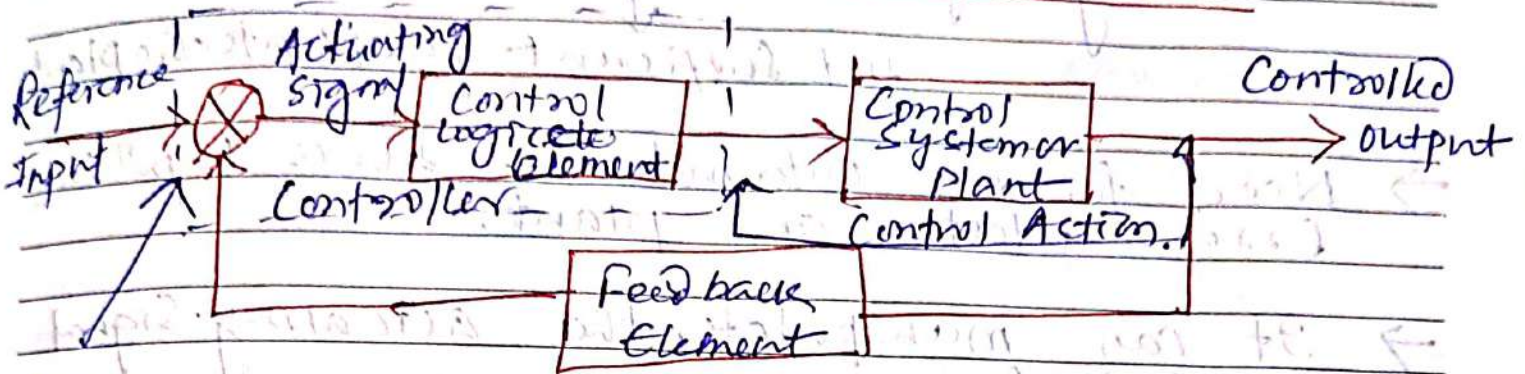 Reference
Input
Actuating
Signal
Control
Logic
Element
Controller
Control
System or
Plant
Control Action.
Controlled
Output
Feedback
Element